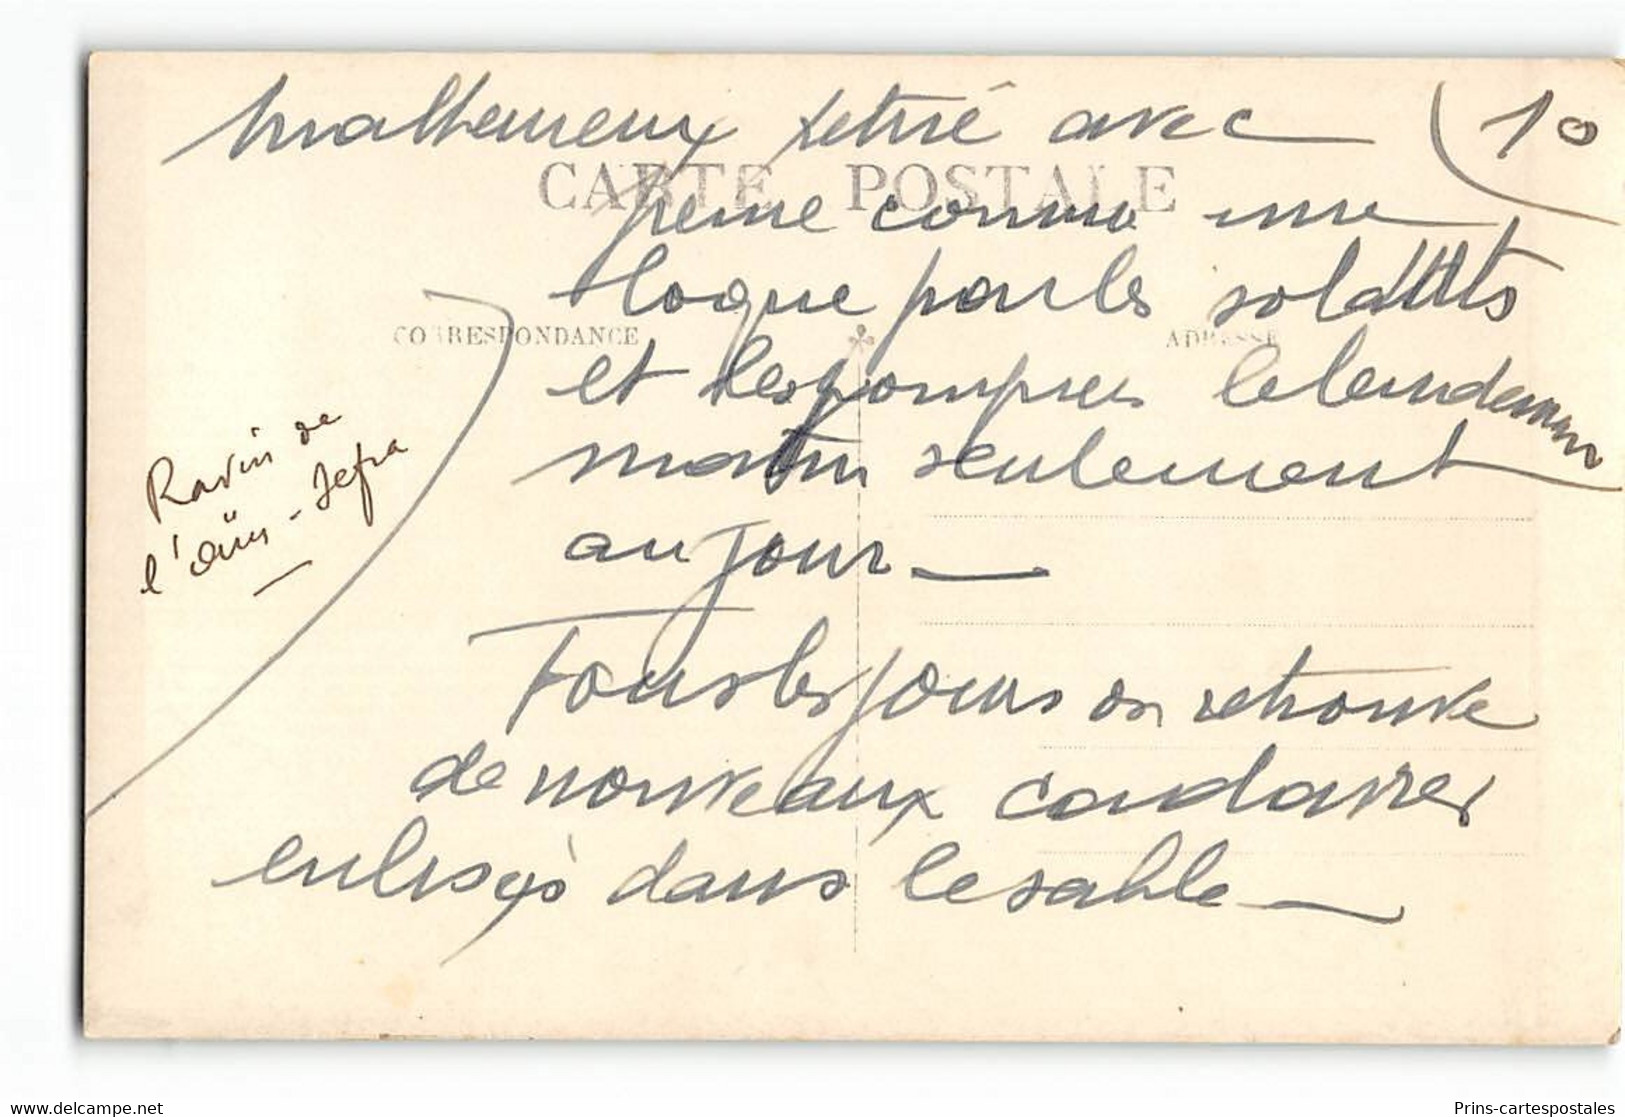 malheureux retiré avec
10
CARTE POSTALE
peine comme une
loque par les soldats
CORRESPONDANCE
ADRESSE
et les pompiers le lendemain
matin seulement
au jour —
Ravin de
l'Aïn-Sefra
Tous les jours on retrouve
de nouveaux cadavres
enlisés dans le sable —
www.delcampe.net
Prins-cartespostales